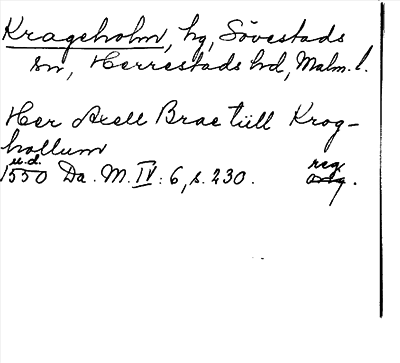 Krageholm, hg, Sövestads
sn, Herrestads hd, Malm. l.
Her Axell Brae tüll Krog-
hollum
u.d. reg.
1550 Da. M. IV: 6, s. 230. orig.